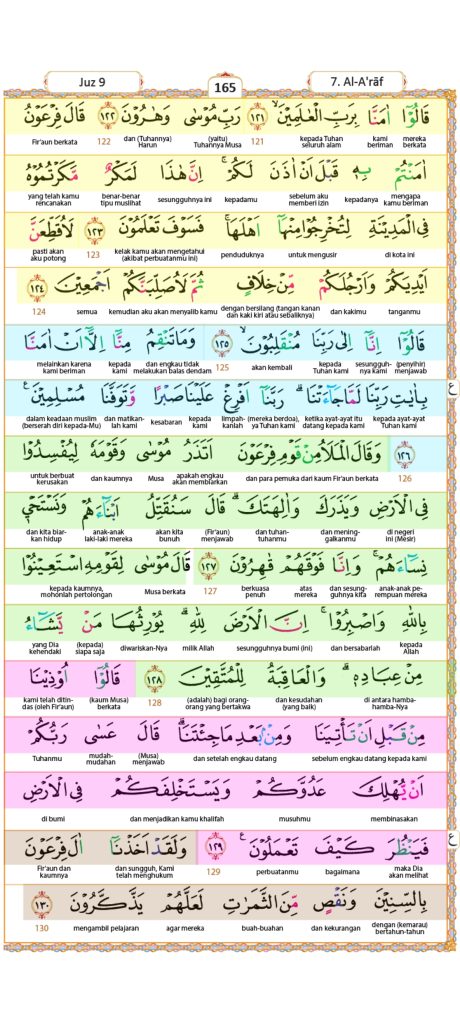 Juz 9
165
7. Al-A'rāf
قَالُوْٓا اٰمَنَّا بِرَبِّ الْعٰلَمِيْنَۙ ١٢١ رَبِّ مُوْسٰى وَهٰرُوْنَ ١٢٢ قَالَ فِرْعَوْنُ
mereka berkata kami beriman kepada Tuhan seluruh alam 121 (yaitu) Tuhannya Musa dan (Tuhannya) Harun 122 Fir'aun berkata
اٰمَنْتُمْ بِهٖ قَبْلَ اَنْ اٰذَنَ لَكُمْۚ اِنَّ هٰذَا لَمَكْرٌ مَّكَرْتُمُوْهُ
mengapa kamu beriman kepadanya sebelum aku memberi izin kepadamu sesungguhnya ini benar-benar tipu muslihat yang telah kamu rencanakan
فِى الْمَدِيْنَةِ لِتُخْرِجُوْا مِنْهَآ اَهْلَهَاۚ فَسَوْفَ تَعْلَمُوْنَ ١٢٣ لَاُقَطِّعَنَّ
di kota ini untuk mengusir penduduknya kelak kamu akan mengetahui (akibat perbuatanmu ini) 123 pasti akan aku potong
اَيْدِيَكُمْ وَاَرْجُلَكُمْ مِّنْ خِلَافٍ ثُمَّ لَاُصَلِّبَنَّكُمْ اَجْمَعِيْنَ ١٢٤
tanganmu dan kakimu dengan bersilang (tangan kanan dan kaki kiri atau sebaliknya) kemudian aku akan menyalib kamu semua 124
قَالُوْٓا اِنَّآ اِلٰى رَبِّنَا مُنْقَلِبُوْنَۙ ١٢٥ وَمَا تَنْقِمُ مِنَّآ اِلَّآ اَنْ اٰمَنَّا
(penyihir) menjawab sesungguhnya kami kepada Tuhan kami akan kembali 125 dan engkau tidak melakukan balas dendam kepada kami melainkan karena kami beriman
بِاٰيٰتِ رَبِّنَا لَمَّا جَاۤءَتْنَاۗ رَبَّنَآ اَفْرِغْ عَلَيْنَا صَبْرًا وَّتَوَفَّنَا مُسْلِمِيْنَࣖ
ع
kepada ayat-ayat Tuhan kami ketika ayat-ayat itu datang kepada kami (mereka berdoa), ya Tuhan kami limpahkanlah kepada kami kesabaran dan matikanlah kami dalam keadaan muslim (berserah diri kepada-Mu)
١٢٦ وَقَالَ الْمَلَاُ مِنْ قَوْمِ فِرْعَوْنَ اَتَذَرُ مُوْسٰى وَقَوْمَهٗ لِيُفْسِدُوْا
126 dan para pemuka dari kaum Fir'aun berkata apakah engkau akan membiarkan Musa dan kaumnya untuk berbuat kerusakan
فِى الْاَرْضِ وَيَذَرَكَ وَاٰلِهَتَكَۗ قَالَ سَنُقَتِّلُ اَبْنَاۤءَهُمْ وَنَسْتَحْيٖ
di negeri ini (Mesir) dan meninggalkanmu dan tuhan-tuhanmu (Fir'aun) menjawab akan kita bunuh anak-anak laki-laki mereka dan kita biarkan hidup
نِسَاۤءَهُمْۚ وَاِنَّا فَوْقَهُمْ قٰهِرُوْنَ ١٢٧ قَالَ مُوْسٰى لِقَوْمِهِ اسْتَعِيْنُوْا
anak-anak perempuan mereka dan sesungguhnya kita atas mereka berkuasa penuh 127 Musa berkata kepada kaumnya, mohonlah pertolongan
بِاللّٰهِ وَاصْبِرُوْاۚ اِنَّ الْاَرْضَ لِلّٰهِۗ يُوْرِثُهَا مَنْ يَّشَاۤءُ
kepada Allah dan bersabarlah sesungguhnya bumi (ini) milik Allah diwariskan-Nya (kepada) siapa saja yang Dia kehendaki
مِنْ عِبَادِهٖۗ وَالْعَاقِبَةُ لِلْمُتَّقِيْنَ ١٢٨ قَالُوْٓا اُوْذِيْنَا
di antara hamba-hamba-Nya dan kesudahan (yang baik) (adalah) bagi orang-orang yang bertakwa 128 (kaum Musa) berkata kami telah ditindas (oleh Fir'aun)
مِنْ قَبْلِ اَنْ تَأْتِيَنَا وَمِنْۢ بَعْدِ مَا جِئْتَنَاۗ قَالَ عَسٰى رَبُّكُمْ
sebelum engkau datang kepada kami dan setelah engkau datang (Musa) menjawab mudah-mudahan Tuhanmu
اَنْ يُّهْلِكَ عَدُوَّكُمْ وَيَسْتَخْلِفَكُمْ فِى الْاَرْضِ
membinasakan musuhmu dan menjadikan kamu khalifah di bumi
فَيَنْظُرَ كَيْفَ تَعْمَلُوْنَࣖ ١٢٩ وَلَقَدْ اَخَذْنَآ اٰلَ فِرْعَوْنَ
ع
maka Dia akan melihat bagaimana perbuatanmu 129 dan sungguh, Kami telah menghukum Fir'aun dan kaumnya
بِالسِّنِيْنَ وَنَقْصٍ مِّنَ الثَّمَرٰتِ لَعَلَّهُمْ يَذَّكَّرُوْنَ ١٣٠
dengan (kemarau) bertahun-tahun dan kekurangan buah-buahan agar mereka mengambil pelajaran 130